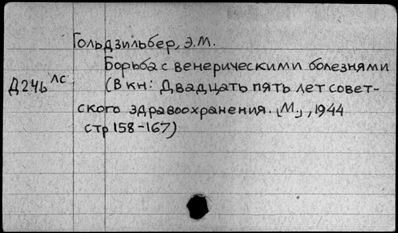 Гольдзильбер, Э.М.
Борьба с венерическими болезнями
Д246 лс
(В кн: Двадцать пять лет совет-
ского здравоохранения. [М.], 1944
стр 158-167)